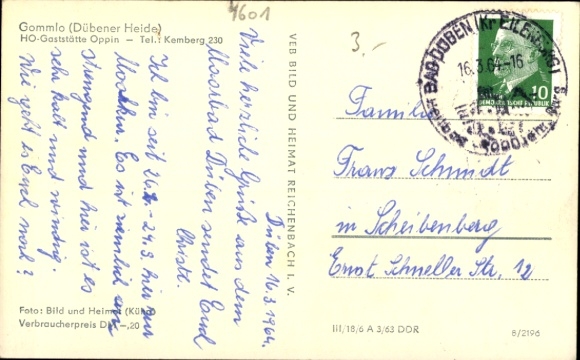 Gommlo (Dübener Heide)
HO-Gaststätte Oppin — Tel.: Kemberg 230
4601
3.-
Düben 16.3.1964.
Viele herzliche Grüße aus dem
Moorbad Düben sendet Euch
Christl.
Ich bin seit 26.2.-24.3. hier zur
Es ist ziemlich
und hier ist es
sehr kalt und windig.
Wie geht es Euch noch?
Foto: Bild und Heimat (Kühn)
Verbraucherpreis DM -,20
VEB BILD UND HEIMAT REICHENBACH I. V.
BAD DÜBEN (Kr EILENBURG)
16.3.64.-16
10
DEUTSCHE DEMOKRATISCHE REPUBLIK
Familie
Franz Schmidt
in Scheibenberg
Ernst Schneller Str. 12
III/18/6 A 3/63 DDR
8/2196